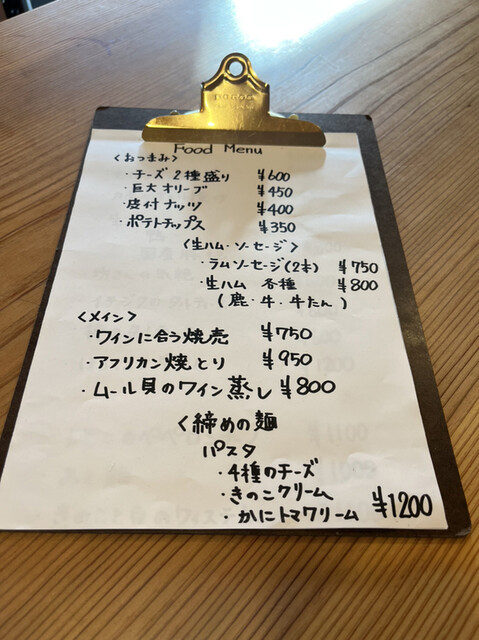 Food Menu
〈おつまみ〉
・チーズ2種盛り ¥600
・巨大オリーブ ¥450
・皮付ナッツ ¥400
・ポテトチップス ¥350
〈生ハム・ソーセージ〉
・ラムソーセージ(2本) ¥750
・生ハム 各種 ¥800
(鹿・牛・牛たん)
〈メイン〉
・ワインに合う焼売 ¥750
・アフリカン焼とり ¥950
・ムール貝のワイン蒸し ¥800
〈締めの麺
パスタ
・4種のチーズ
・きのこクリーム
・かにトマクリーム ¥1200